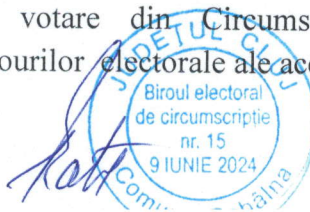 votare din Circums
ourilor electorale ale ace
JUDEȚUL CLUJ
Biroul electoral
de circumscripție
nr. 15
9 IUNIE 2024